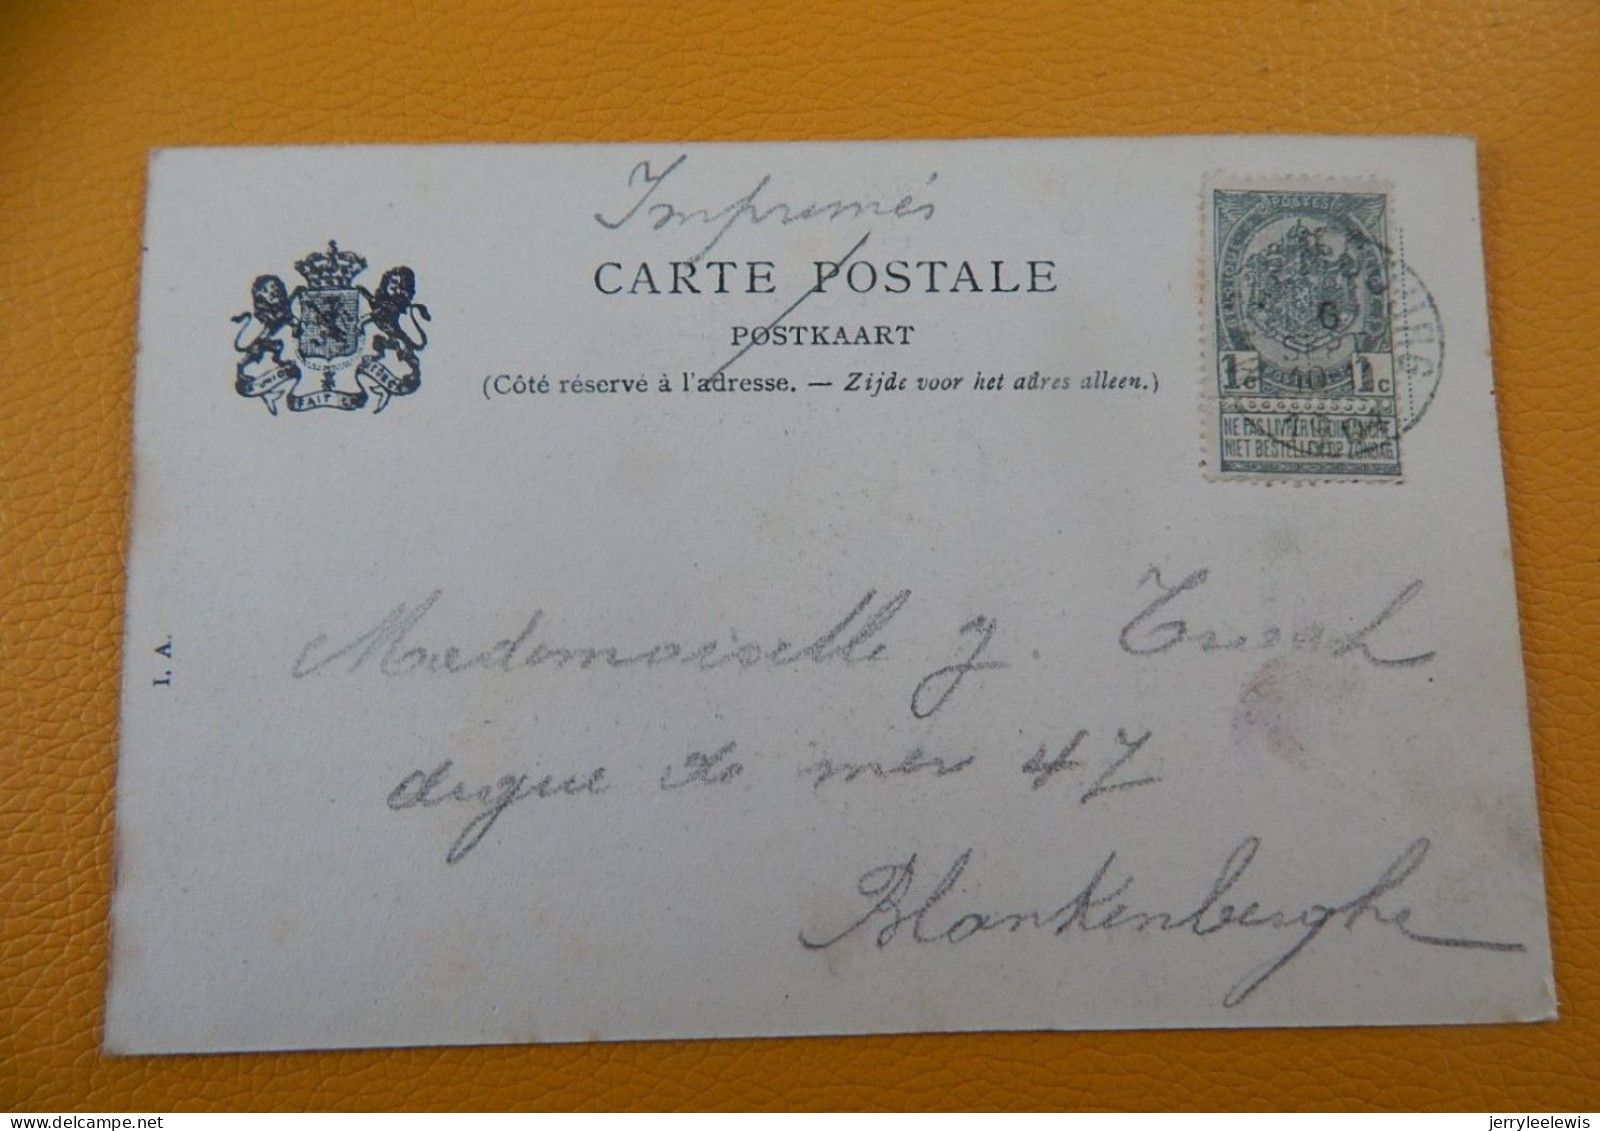 Imprimés
CARTE POSTALE
POSTKAART
(Côté réservé à l'adresse. — Zijde voor het adres alleen.)
L'UNION FAIT LA FORCE
POSTES
6
SEPT
1 c 1 c
NE PAS LIVRER LE DIMANCHE
NIET BESTELLEN OP ZONDAG
I. A.
Mademoiselle J.
digue de mer 47
Blankenberghe
jerryleelewis